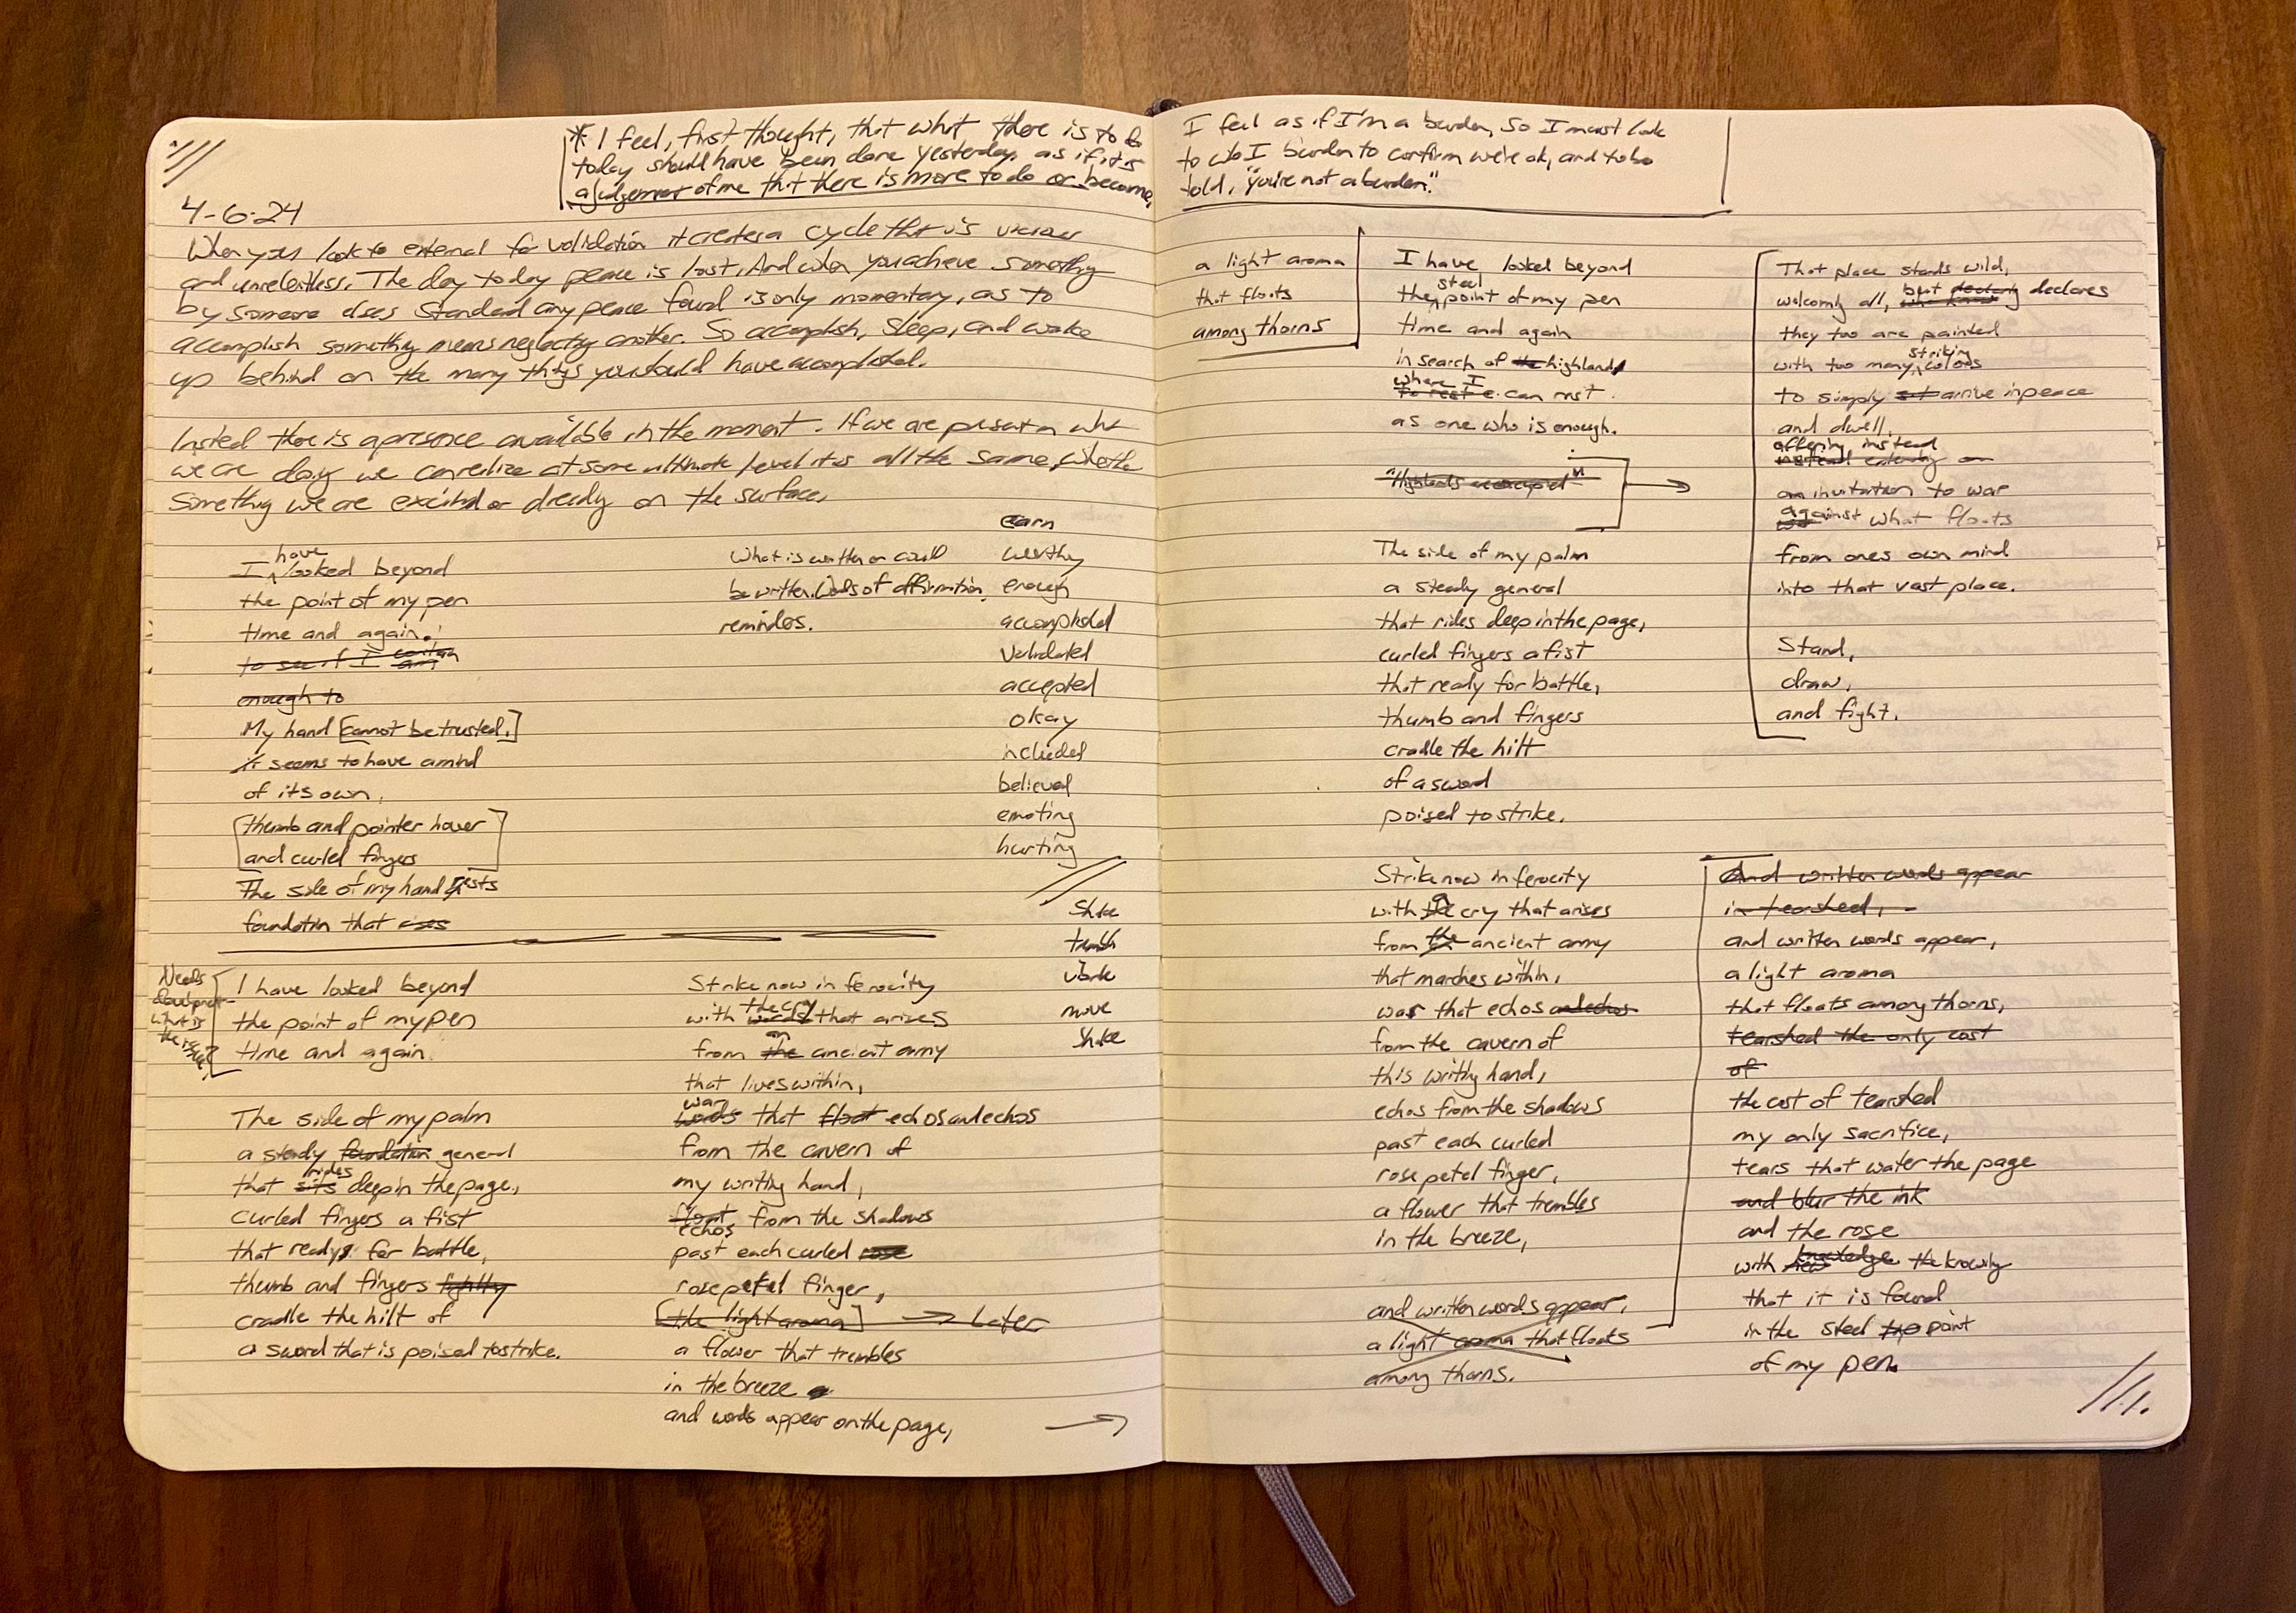 * I feel, first thought, that what there is to do
today should have been done yesterday, as if it is
a judgement of me that there is more to do or become,
4-6-24
When you look to external for validation it creates a cycle that is vicious
and unrelentless. The day to day peace is lost. And when you achieve something
by someone elses standard any peace found is only momentary, as to
accomplish something means neglecting another. So accomplish, sleep, and wake
up behind on the many things you should have accomplished.
Insted there is a presence available in the moment. If we are present in what
we are doing we can realize at some ultimate level it is all the same, whether
something we are excited or dreadly on the surface.
have
I looked beyond
the point of my pen
time and again.
to see if I contain
am
enough to
My hand [cannot be trusted.]
it seems to have a mind
of its own.
[thumb and pointer hover
and curled fingers]
The side of my hand rests
foundation that
What is written or could
be written. Words of affirmation,
reminders.
earn
worthy
enough
accomplished
validated
accepted
okay
included
believed
emoting
hurting
Shake
tremble
move
Shake
Needs
what is
I have looked beyond
the point of my pen
time and again.
The side of my palm
a steady foundation general
rides
that sits deep in the page,
curled fingers a fist
that ready for battle,
thumb and fingers lightly
cradle the hilt of
a sword that is poised to strike.
Strike now in ferocity
the cry
with words that arises
an
from the ancient army
that lives within,
war
words that float echos and echos
from the cavern of
my writing hand,
float from the shadows
echos
past each curled rose
rose petel finger,
[the light aroma] → Later
a flower that trembles
in the breeze
and words appear on the page, →
I feel as if I'm a burden, so I must look
to who I burden to confirm we're ok, and to be
told, "you're not a burden."
a light aroma
that floats
among thorns
I have looked beyond
steel
the point of my pen
time and again
in search of the highland
where I
to rest can rest
as one who is enough.
"Highlands"
The side of my palm
a steady general
that rides deep in the page,
curled fingers a fist
that ready for battle,
thumb and fingers
cradle the hilt
of a sword
poised to strike.
Strike now in ferocity
a
with the cry that arises
from the ancient army
that marches within,
war that echos and echos
from the cavern of
this writing hand,
echos from the shadows
past each curled
rose petel finger,
a flower that trembles
in the breeze,
and written words appear,
a light aroma that floats
among thorns.
That place stands wild,
but declaring declares
welcoming all,
they too are painted
striking
with too many colors
to simply arrive in peace
and dwell,
offering instead
instead extending an
an invitation to war
against what floats
from ones own mind
into that vast place.
Stand,
draw,
and fight.
And written words appear
in tearshed,
and written words appear,
a light aroma
that floats among thorns,
tearshed the only cost
of
the cost of tearshed
my only sacrifice,
tears that water the page
and blur the ink
and the rose
with knowledge the knowing
that it is found
in the steel tip point
of my pen.